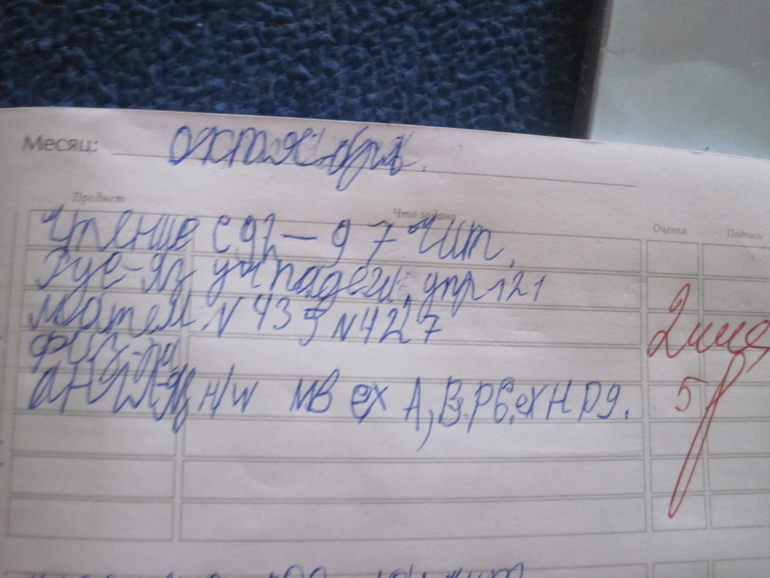 Месяц: октябрь.
Предмет Что задано Оценка Подпись
Чтение с 92–97 чит.
Рус-яз уч падежи, упр 121
Матем N 435 N 427 2
физ-ра
англ-яз H/w WB ex A, B. P6. ex H p 9. 5